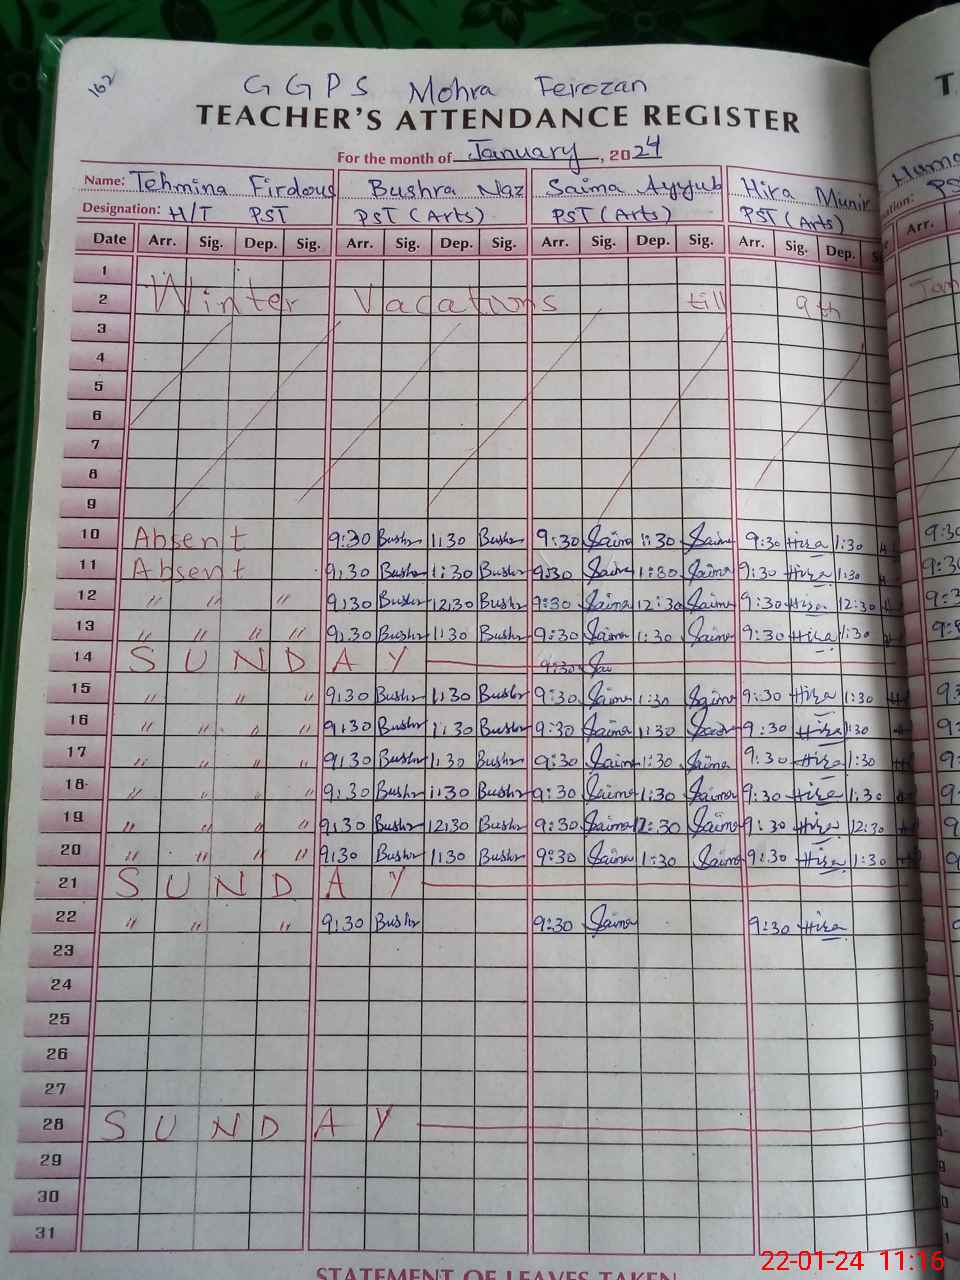 162
G G P S Mohra Feirozan
TEACHER'S ATTENDANCE REGISTER
For the month of January, 2024
Name: Tehmina Firdous Bushra Naz Saima Ayyub Hira Munir
Designation: H/T PST PST (Arts) PST (Arts) PST (Arts)
Date Arr. Sig. Dep. Sig. Arr. Sig. Dep. Sig. Arr. Sig. Dep. Sig. Arr. Sig. Dep. Arr.
1
2 Winter Vacations till 9th
3
4
5
6
7
8
9
10 Absent 9:30 Bushr 1:30 Bushr 9:30 Saima 1:30 Saima 9:30 Hira 1:30
11 Absent 9:30 Bushr 1:30 Bushr 9:30 Saima 1:30 Saima 9:30 Hira 1:30
12 " " " 9:30 Bushr 12:30 Bushr 9:30 Saima 12:30 Saima 9:30 Hira 12:30
13 " " " " 9:30 Bushr 1:30 Bushr 9:30 Saima 1:30 Saima 9:30 Hira 1:30
14 S U N D A Y 9:30 Sai
15 " " " 9:30 Bushr 1:30 Bushr 9:30 Saima 1:30 Saima 9:30 Hira 1:30
16 " " " " 9:30 Bushr 1:30 Bushr 9:30 Saima 1:30 Saima 9:30 Hira 1:30
17 " " " " 9:30 Bushr 1:30 Bushr 9:30 Saima 1:30 Saima 9:30 Hira 1:30
18 " " " " 9:30 Bushr 1:30 Bushr 9:30 Saima 1:30 Saima 9:30 Hira 1:30
19 " " " " 9:30 Bushr 12:30 Bushr 9:30 Saima 12:30 Saima 9:30 Hira 12:30
20 " " " " 9:30 Bushr 1:30 Bushr 9:30 Saima 1:30 Saima 9:30 Hira 1:30
21 S U N D A Y
22 " " " 9:30 Bushr 9:30 Saima 9:30 Hira
23
24
25
26
27
28 S U N D A Y
29
30
31
STATEMENT OF LEAVES TAKEN
22-01-24 11:16